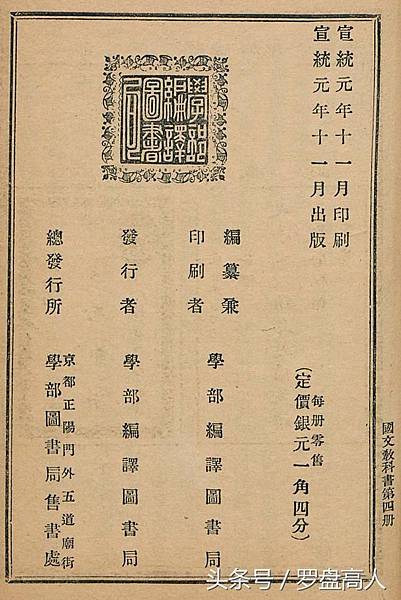 國文教科書第四册
宣統元年十一月印刷
宣統元年十一月出版
每册零售
(定價銀元一角四分)
學部編譯圖書局
編纂兼
印刷者
學部編譯圖書局
發行者
學部編譯圖書局
總發行所
京都正陽門外五道廟街
學部圖書局售書處
头条号 / 罗盘高人